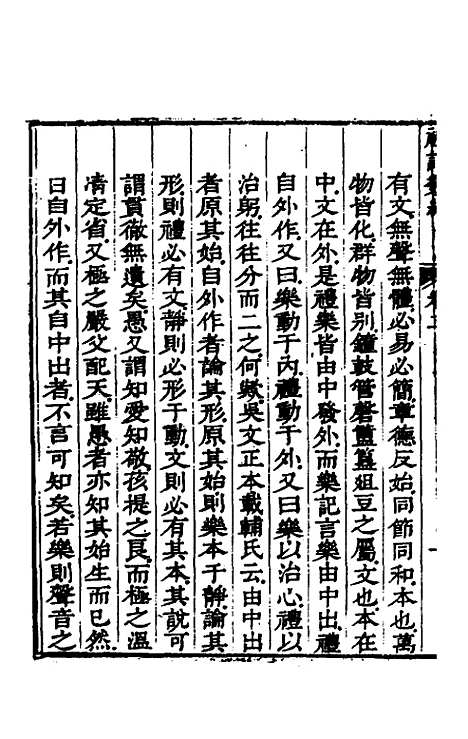 有文無聲無體必易必簡章德反始同節同和本也萬
物皆化群物皆別鐘鼓管磬簠簋俎豆之屬文也本在
中文在外是禮樂皆由中發外而樂記言樂由中出禮
自外作又曰樂動于內禮動于外又曰樂以治心禮以
治躬往往分而二之何歟吳文正本載輔氏云由中出
者原其始自外作者論其形原其始則樂本于靜論其
形則禮必有文靜則必形于動文則必有其本其說可
謂貫徹無遺矣愚又謂知愛知敬孩提之良而極之溫
凊定省又極之嚴父配天雖愚者亦知其始生而已然
曰自外作而其自中出者不言可知矣若樂則聲音之